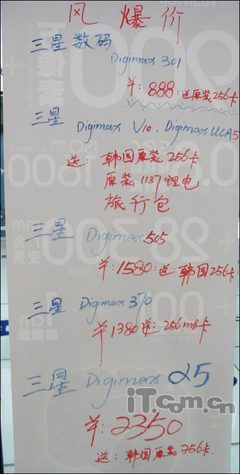 风爆价
三星数码
Digimax 301
¥:888:送原装256卡
三星
Digimax V10、Digimax UCA5
送: 韩国原装256卡
原装1137锂电
旅行包
三星 Digimax 505
¥:1580:送:韩国256卡
三星 Digimax 370
¥1380送:256MB卡
三星 Digimax 25
¥:2350
iT.com.cn
送:韩国原装256卡